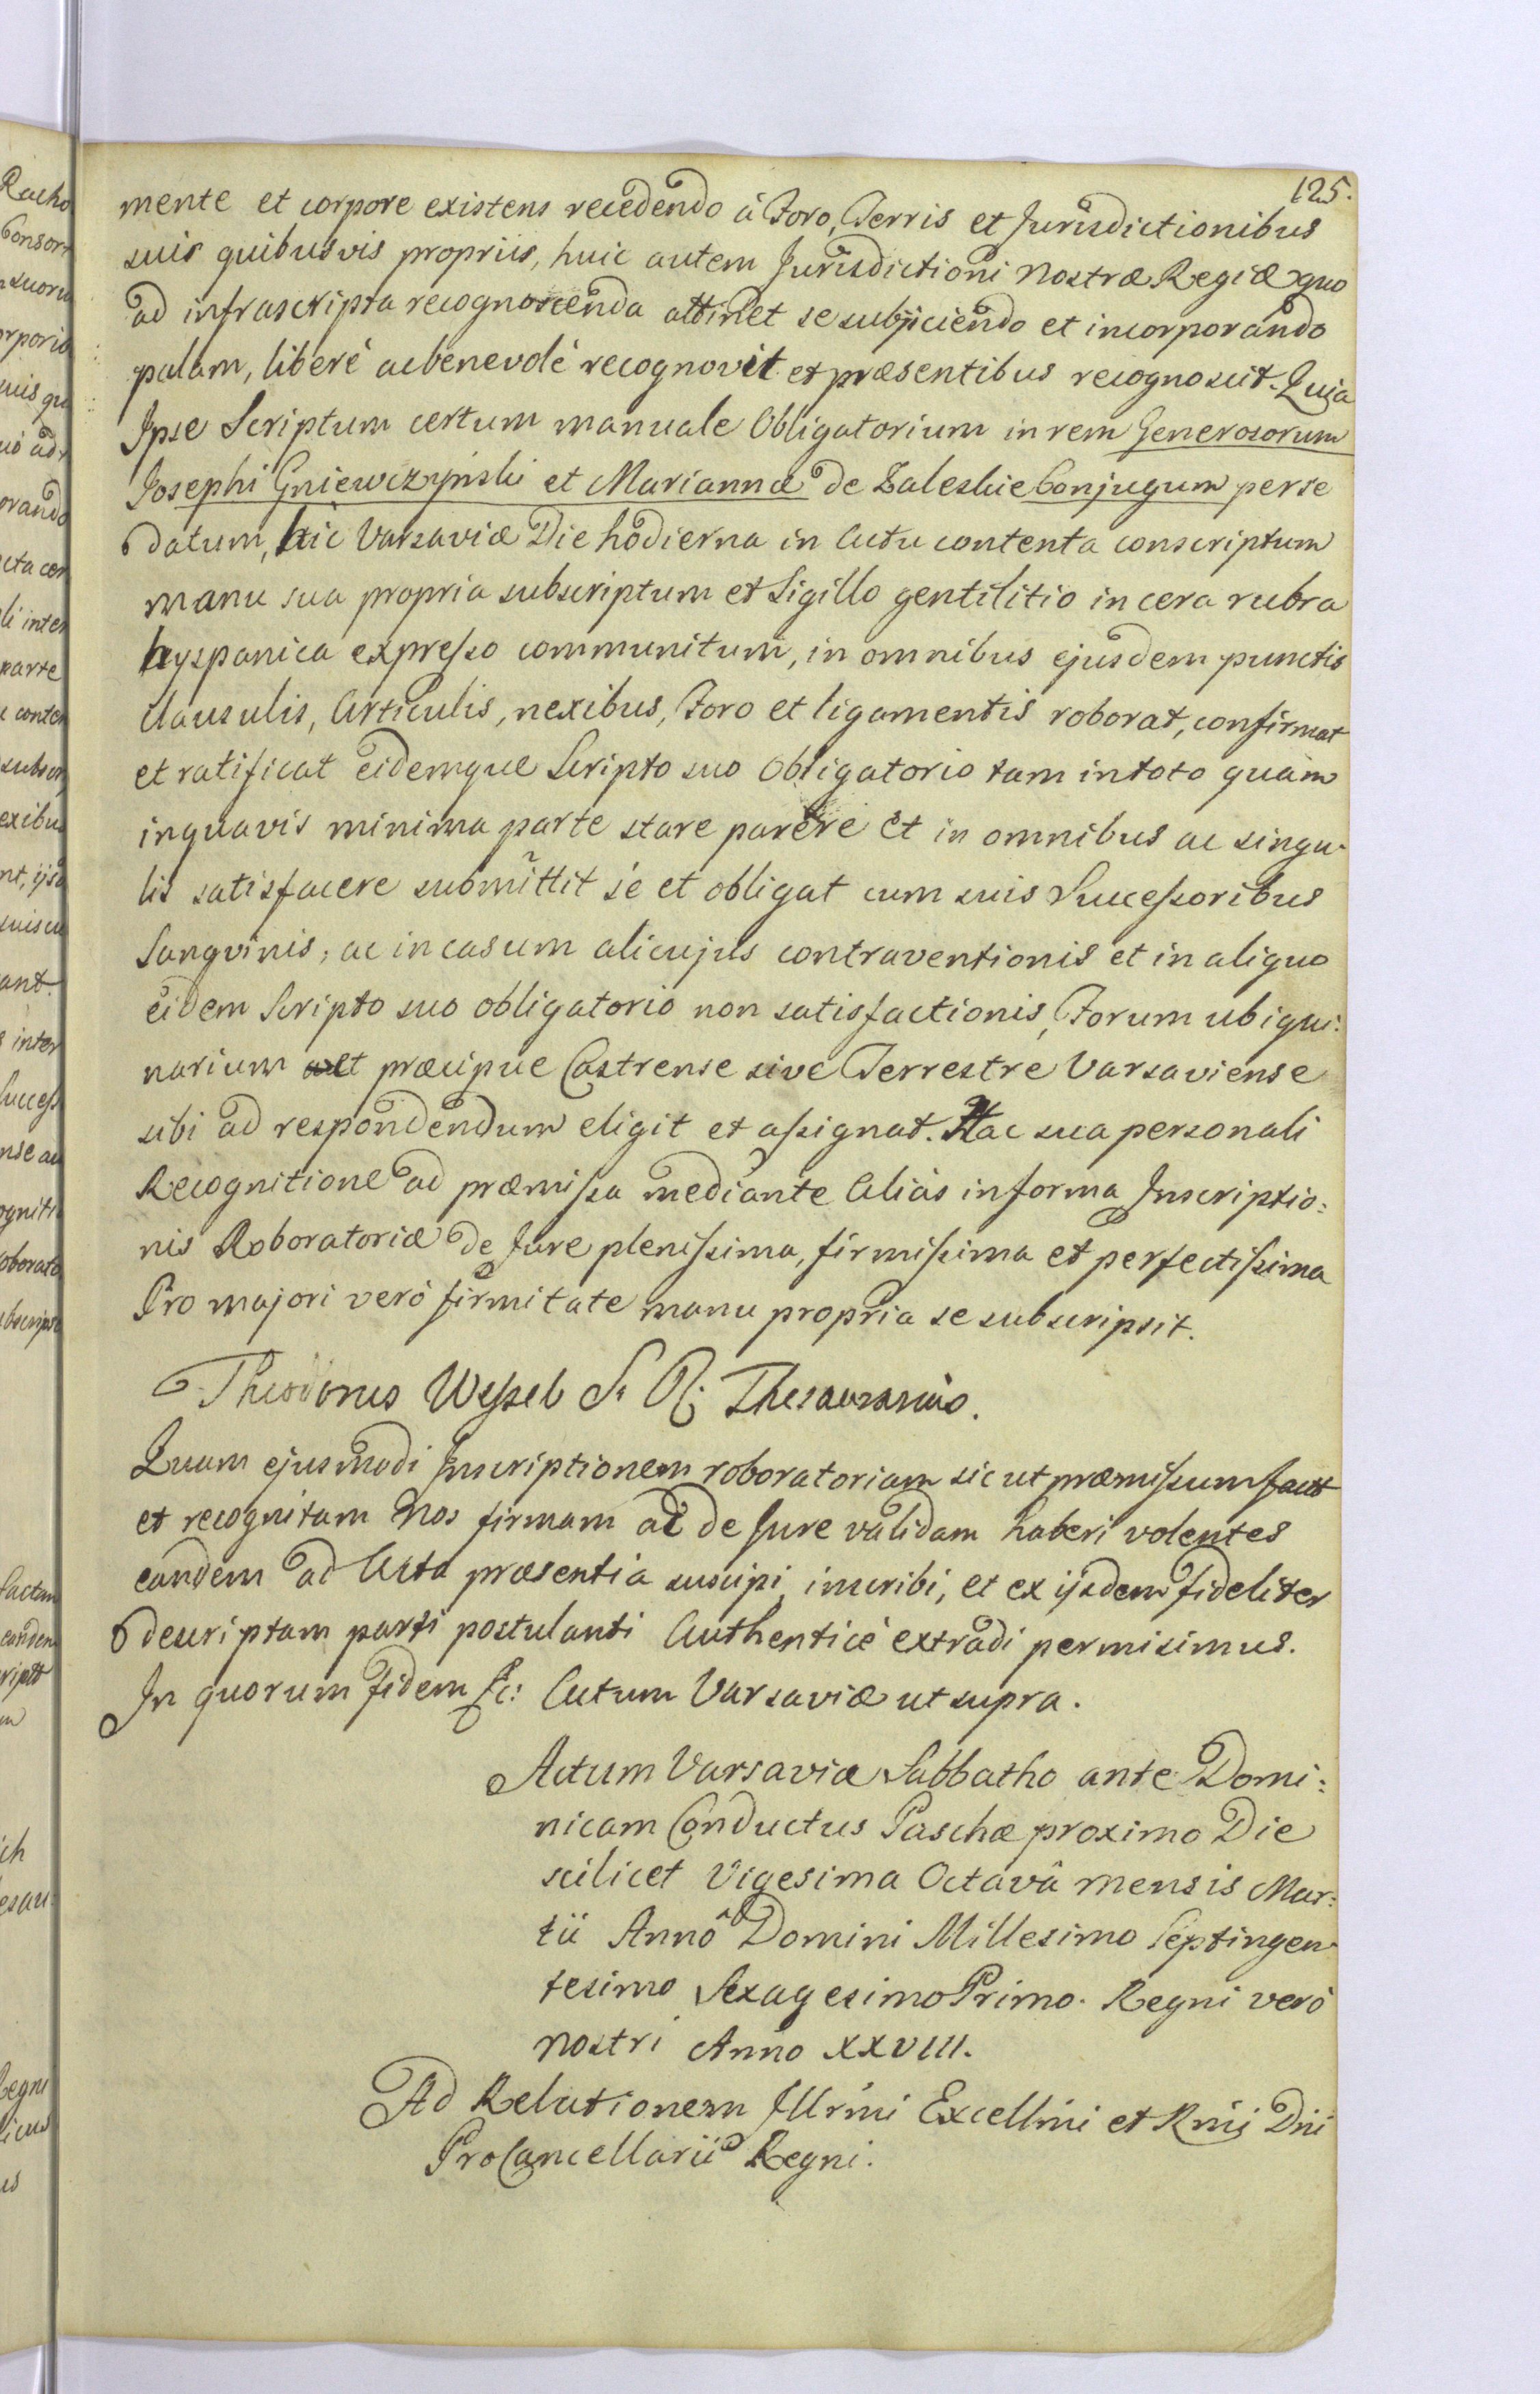 125.
mente et corpore existens recedendo à Foro, Terris et Jurisdictionibus
suis quibusvis propriis, huic autem Jurisdictioni Nostræ Regiæ quo
ad infrascripta recognoscenda attinet se subjiciendo et incorporando
palam, liberè ac benevolè recognovit et præsentibus recognoscit. Quia
Ipse Scriptum certum manuale Obligatorium in rem Generosorum
Josephi Gniewczyński et Mariannæ de Zaleskie Conjugum per se
datum, hic Varsaviæ Die hodierna in Actu contenta conscriptum
manu sua propria subscriptum et Sigillo gentilitio in cera rubra
hyspanica expresso communitum, in omnibus ejusdem punctis
Clausulis, Articulis, nexibus, Foro et ligamentis roborat, confirmat
et ratificat eidemque Scripto suo Obligatorio tam in toto quàm
in quavis minima parte stare parere et in omnibus ac singu-
lis satisfacere submittit se et obligat cum suis Successoribus
Sangvinis, ac in casum alicujus contraventionis et in aliquo
eidem Scripto suo obligatorio non satisfactionis, Forum ubiqui:
narium et præcipue Castrense sive Terrestre Varsaviense
sibi ad respondendum eligit et assignat. Hac sua personali
Recognitione ad præmissa mediante Aliàs in forma Inscriptio:
nis Roboratoriæ de Jure plenissima, firmissima et perfectissima
Pro majori verò firmitate manu propria se subscripsit.
Theodorus Wessel S. R: Thesaurarius.
Quam ejusmodi Inscriptionem roboratoriam sic ut præmissum factt
et recognitam Nos firmam ac de Jure validam haberi volentes
eandem ad Acta præsentia suscipi, inscribi, et ex ijsdem fideliter
descriptam parti postulanti Authenticè extradi permisimus.
In quorum fidem &c: Actum Varsaviæ ut supra.
Actum Varsaviæ Sabbatho ante Domi:
nicam Conductus Paschæ proximo Die
scilicet Vigesima Octavâ mensis Mar:
tii Annô Domini Millesimo Septingen-
tesimo Sexagesimo Primo. Regni verò
nostri Anno XXVIII.
Ad Relationem Illrmi Excellmi et Rmi Dni
ProCancellarii Regni.